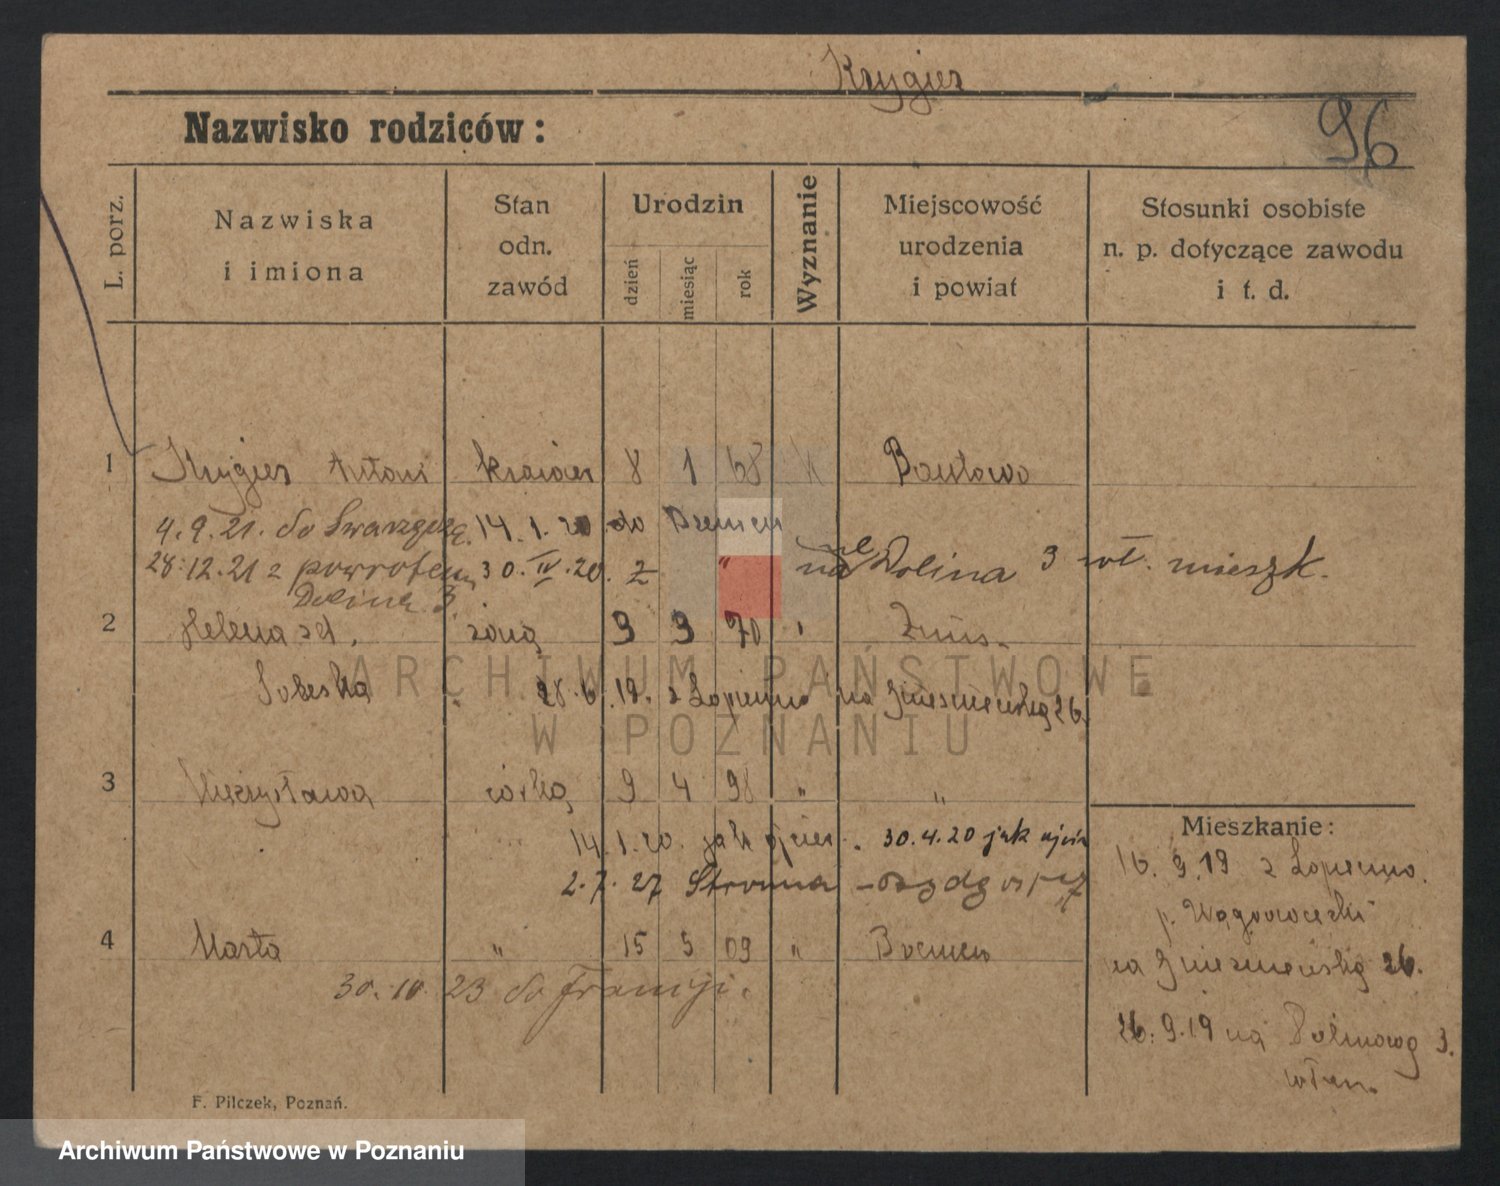 Krygier
96
Nazwisko rodziców:
L. porz.
Nazwiska
i imiona
Stan
odn.
zawód
Urodzin
dzień
miesiąc
rok
Wyznanie
Miejscowość
urodzenia
i powiat
Stosunki osobiste
n. p. dotyczące zawodu
i t. d.
1 Krygier Antoni krawiec 8 1 68 k
4.9.21. do Swarzędza. 14.1.20. do Bremen
28.12.21 z powrotem 30.IV.20. z " na Dolina 3 wł. mieszk.
Dolina 3.
2 Helena żoną 9 9 70 " Żnin.
28.6.19. z Łopienno na Gnieznieńską 26.
ARCHIWUM PAŃSTWOWE
W POZNANIU
3 Mieczysława córką 9 4 98 " "
14.1.20. jak ojciec. 30.4.20 jak ojciec
2.7.27 Stroma
4 Marta " 15 5 09 " Bremen
30.10.23 do Francji.
Mieszkanie:
16.9.19 z Łopienno.
p. Wągrowiecki
na Gnieznieńską 26.
26.9.19 na Dolinową 3.
własn.
F. Pilczek, Poznań.
Archiwum Państwowe w Poznaniu